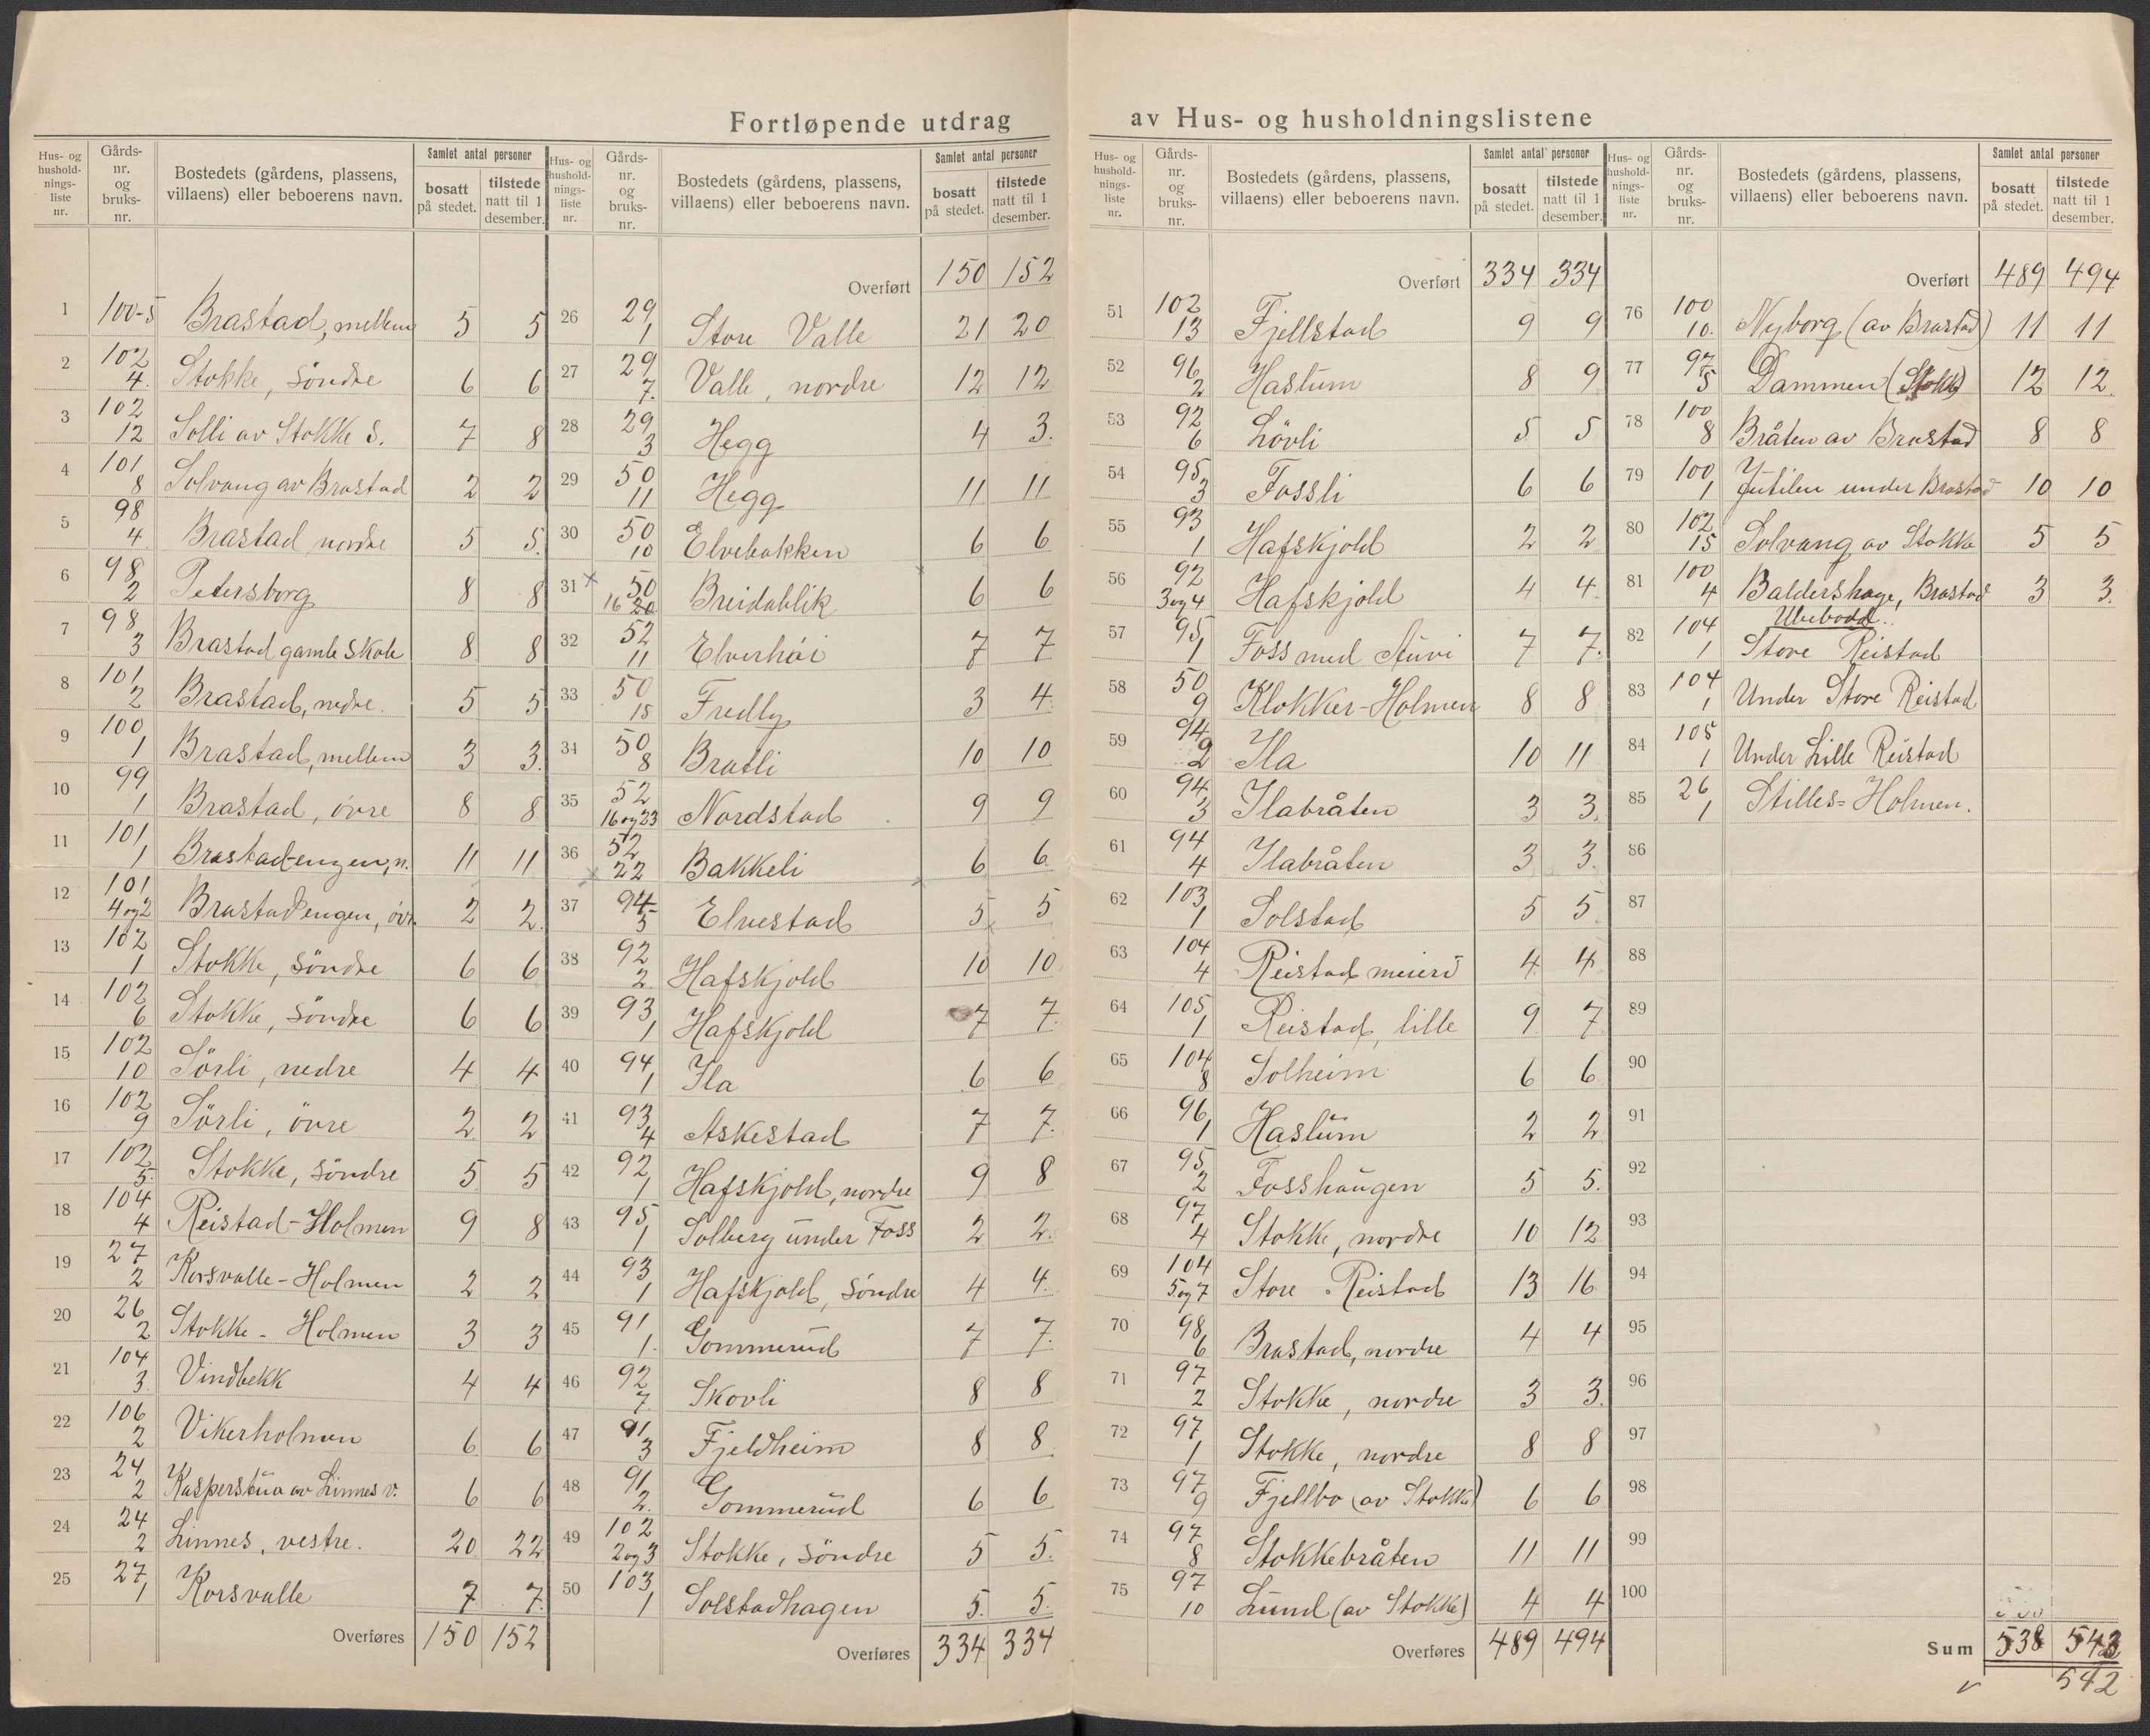 Fortløpende utdrag av Hus- og husholdningslistene
Hus- og hushold-nings-liste nr. Gårds-nr. og bruks-nr. Bostedets (gårdens, plassens, villaens) eller beboerens navn. Samlet antal personer bosatt på stedet. tilstede natt til 1 desember.
1 100-5 Brastad, mellem 5 5
2 102 4. Stokke, søndre 6 6
3 102 12 Solli av Stokke s. 7 8
4 101 8 Solvang av Brastad 2 2
5 98 4 Brastad nordre 5 5.
6 98 2 Petersborg 8 8
7 98 3 Brastad gamle skole 8 8
8 101 2 Brastad, nedre. 5 5
9 100 1 Brastad, mellem 3 3.
10 99 1 Brastad, övre 8 8
11 101 1 Brastad-engen, n. 11 11
12 101 4 og 2 Brastadengen, övr. 2 2.
13 102 1 Stokke, söndre 6 6
14 102 6 Stokke, söndre 6 6
15 102 10 Sörli, nedre 4 4
16 102 9 Sörli, övre 2 2
17 102 5. Stokke, söndre 5 5
18 104 4 Reistad-Holmen 9 8
19 27 2 Korsvalle-Holmen 2 2
20 26 2 Stokke-Holmen 3 3
21 104 3 Vindbekk 4 4
22 106 2 Vikerholmen 6 6
23 24 2 Kasperstua av Linnes v. 6 6
24 24 2 Linnes, vestre. 20 22
25 27 1 Korsvalle 7 7.
Overføres 150 152
Hus- og hushold-nings-liste nr. Gårds-nr. og bruks-nr. Bostedets (gårdens, plassens, villaens) eller beboerens navn. Samlet antal personer bosatt på stedet. tilstede natt til 1 desember.
Overført 150 152
26 29 1 Store Valle 21 20
27 29 7. Valle, nordre 12 12
28 29 3 Hegg 4 3.
29 50 11 Hegg 11 11
30 50 10 Elvebakken 6 6
31 50 16 20 Breidablik 6 6
32 52 11 Elverhøi 7 7
33 50 15 Fredly 3 4
34 50 8 Bratli 10 10
35 52 16 og 23 Nordstad 9 9
36 52 22 Bakkeli 6 6
37 94 5 Elvestad 5 5
38 92 2 Hafskjold 10 10
39 93 1 Hafskjold 7 7.
40 94 1 Ila 6 6
41 93 4 Askestad 7 7.
42 92 1 Hafskjold, nordre 9 8
43 95 1 Solberg under Foss 2 2.
44 93 1 Hafskjold, Söndre 4 4.
45 91 1. Gommerud 7 7.
46 92 7. Skovli 8 8
47 91 3 Fjeldheim 8 8
48 91 2. Gommerud 6 6
49 102 2 og 3 Stokke, Söndre 5 5.
50 103 1 Solstadhagen 5. 5.
Overføres 334 334
Hus- og hushold-nings-liste nr. Gårds-nr. og bruks-nr. Bostedets (gårdens, plassens, villaens) eller beboerens navn. Samlet antal personer bosatt på stedet. tilstede natt til 1 desember.
Overført 334 334
51 102 13 Fjellstad 9 9
52 96 2 Haslum 8 9
53 92 6 Lövli 5 5
54 95 3 Fossli 6 6
55 93 1 Hafskjold 2 2
56 92 3 og 4 Hafskjold 4 4.
57 95 1 Foss med Stuvi 7 7.
58 50 9 Klokker-Holmen 8 8
59 94 2 Ila 10 11
60 94 3 Ilabråten 3 3.
61 94 4 Ilabråten 3 3.
62 103 1 Solstad 5 5
63 104 4 Reistad meieri 4 4
64 105 1 Reistad, lille 9 7
65 104 8 Solheim 6 6
66 96 1 Haslum 2 2
67 95 2 Fosshaugen 5 5.
68 97 4 Stokke, nordre 10 12
69 104 5 og 7 Store Reistad 13 16
70 98 6 Brastad, nordre 4 4
71 97 2 Stokke, nordre 3 3.
72 97 1 Stokke, nordre 8 8
73 97 9 Fjellbo (av Stokke) 6 6
74 97 8 Stokkebråten 11 11
75 97 10 Lund (av Stokke) 4 4
Overføres 489 494
Hus- og hushold-nings-liste nr. Gårds-nr. og bruks-nr. Bostedets (gårdens, plassens, villaens) eller beboerens navn. Samlet antal personer bosatt på stedet. tilstede natt til 1 desember.
Overført 489 494
76 100 10. Nyborg (av Brastad) 11 11
77 97 5 Dammen (Stokke) 12 12.
78 100 8 Bråten av Brastad 8 8
79 100 1 Jutilen under Brastad 10 10
80 102 15 Solvang av Stokke 5 5
81 100 4 Baldershage, Brastad 3 3.
Ubebodd.
82 104 1 Store Reistad
83 104 1 Under Store Reistad
84 105 1 Under Lille Reistad
85 26 1 Stilles-Holmen.
86
87
88
89
90
91
92
93
94
95
96
97
98
99
100
Sum 538 543
542